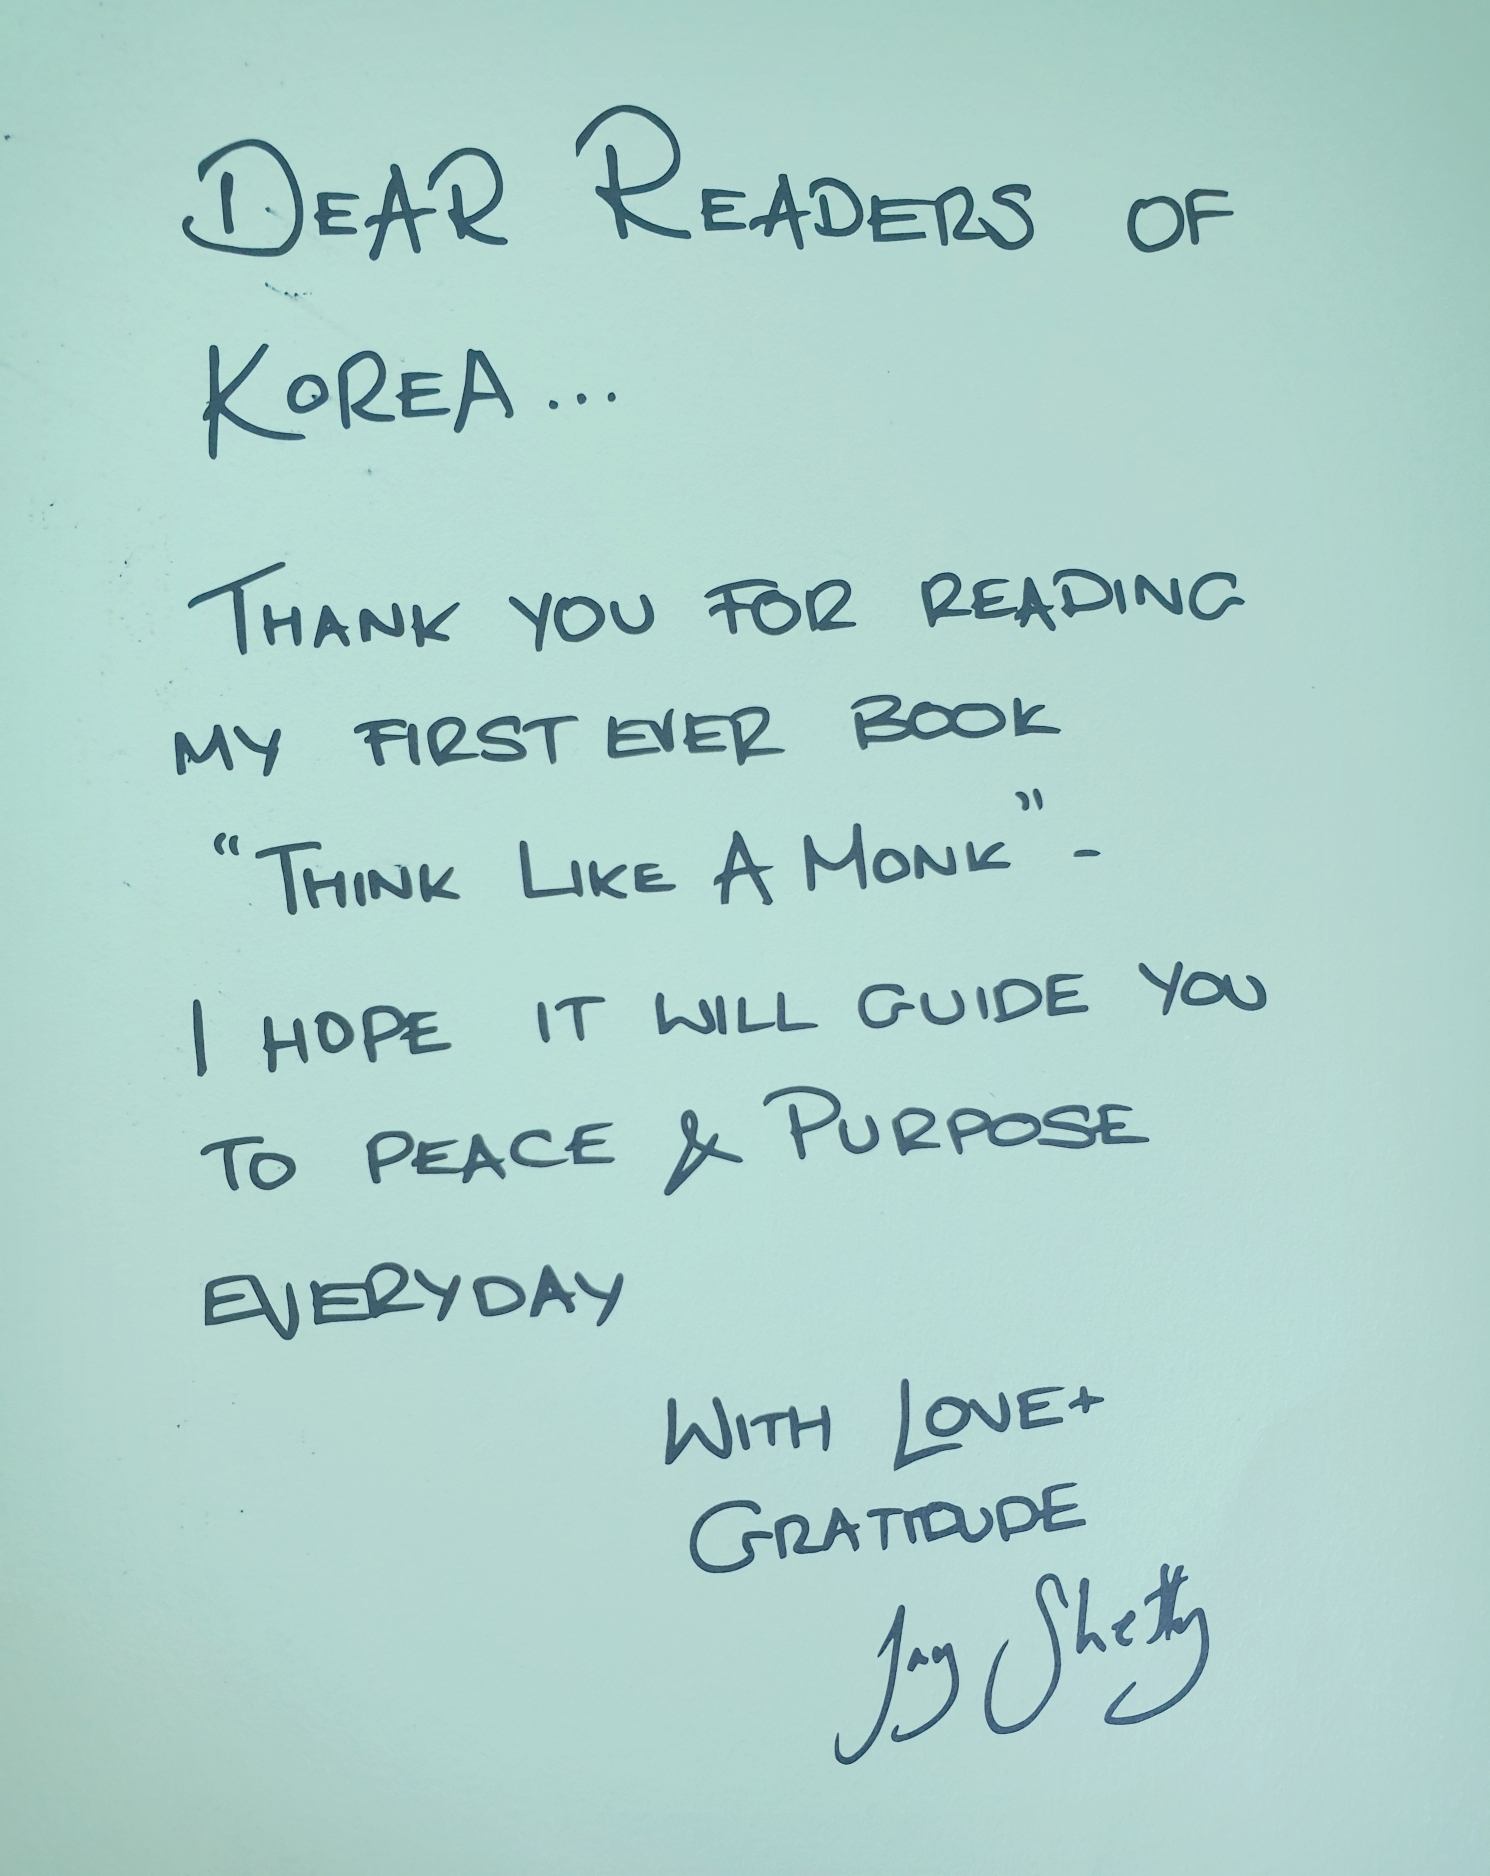 DEAR READERS OF
KOREA...
THANK YOU FOR READING
MY FIRST EVER BOOK
“THINK LIKE A MONK” -
I HOPE IT WILL GUIDE YOU
TO PEACE & PURPOSE
EVERYDAY
WITH LOVE+
GRATITUDE
Jay Shetty